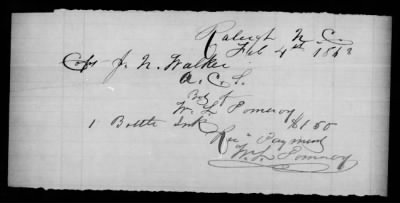 Raleigh N. C.
Feb 4th 1863
Capt J. N. Walker
A. C. S.
Bot of
W. L. Pomeroy
1 Bottle Ink $1.50
Rec'd Payment
W. L. Pomeroy